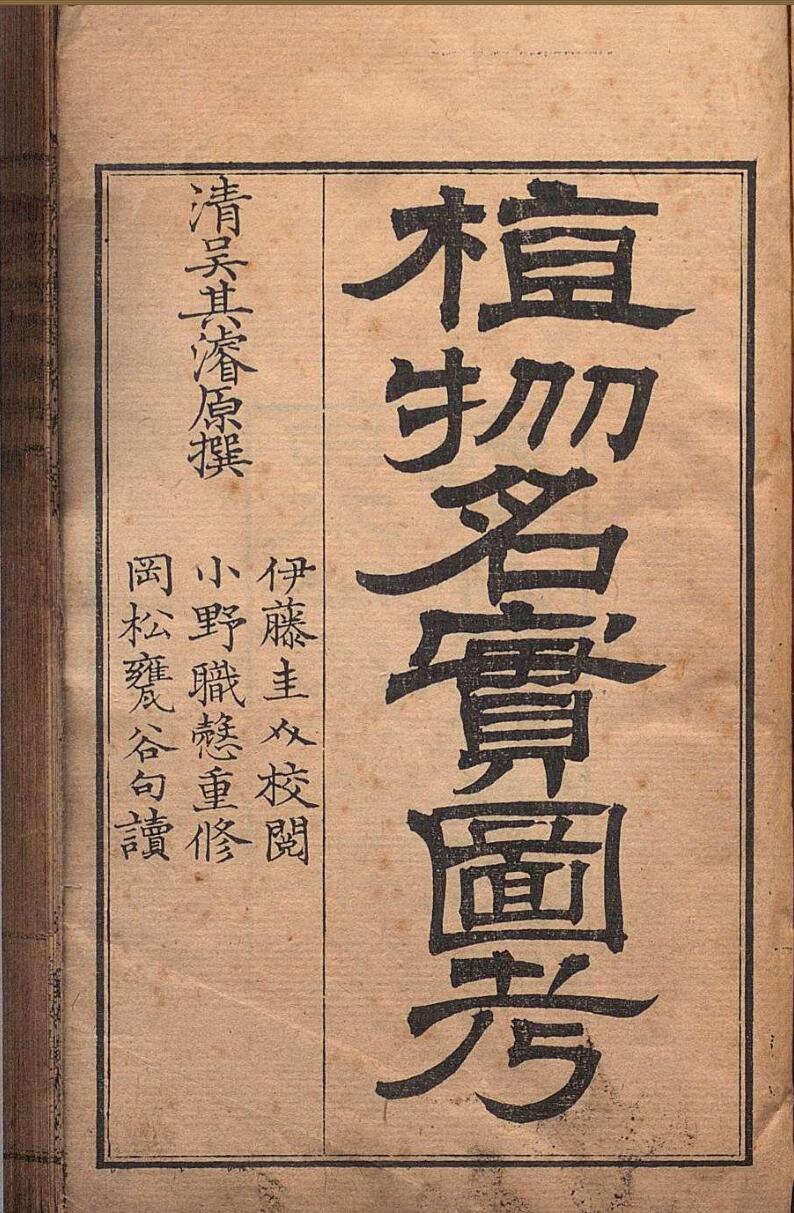 植物名實圖考
清吴其濬原撰
伊藤圭介校閲
小野職愨重修
岡松甕谷句讀